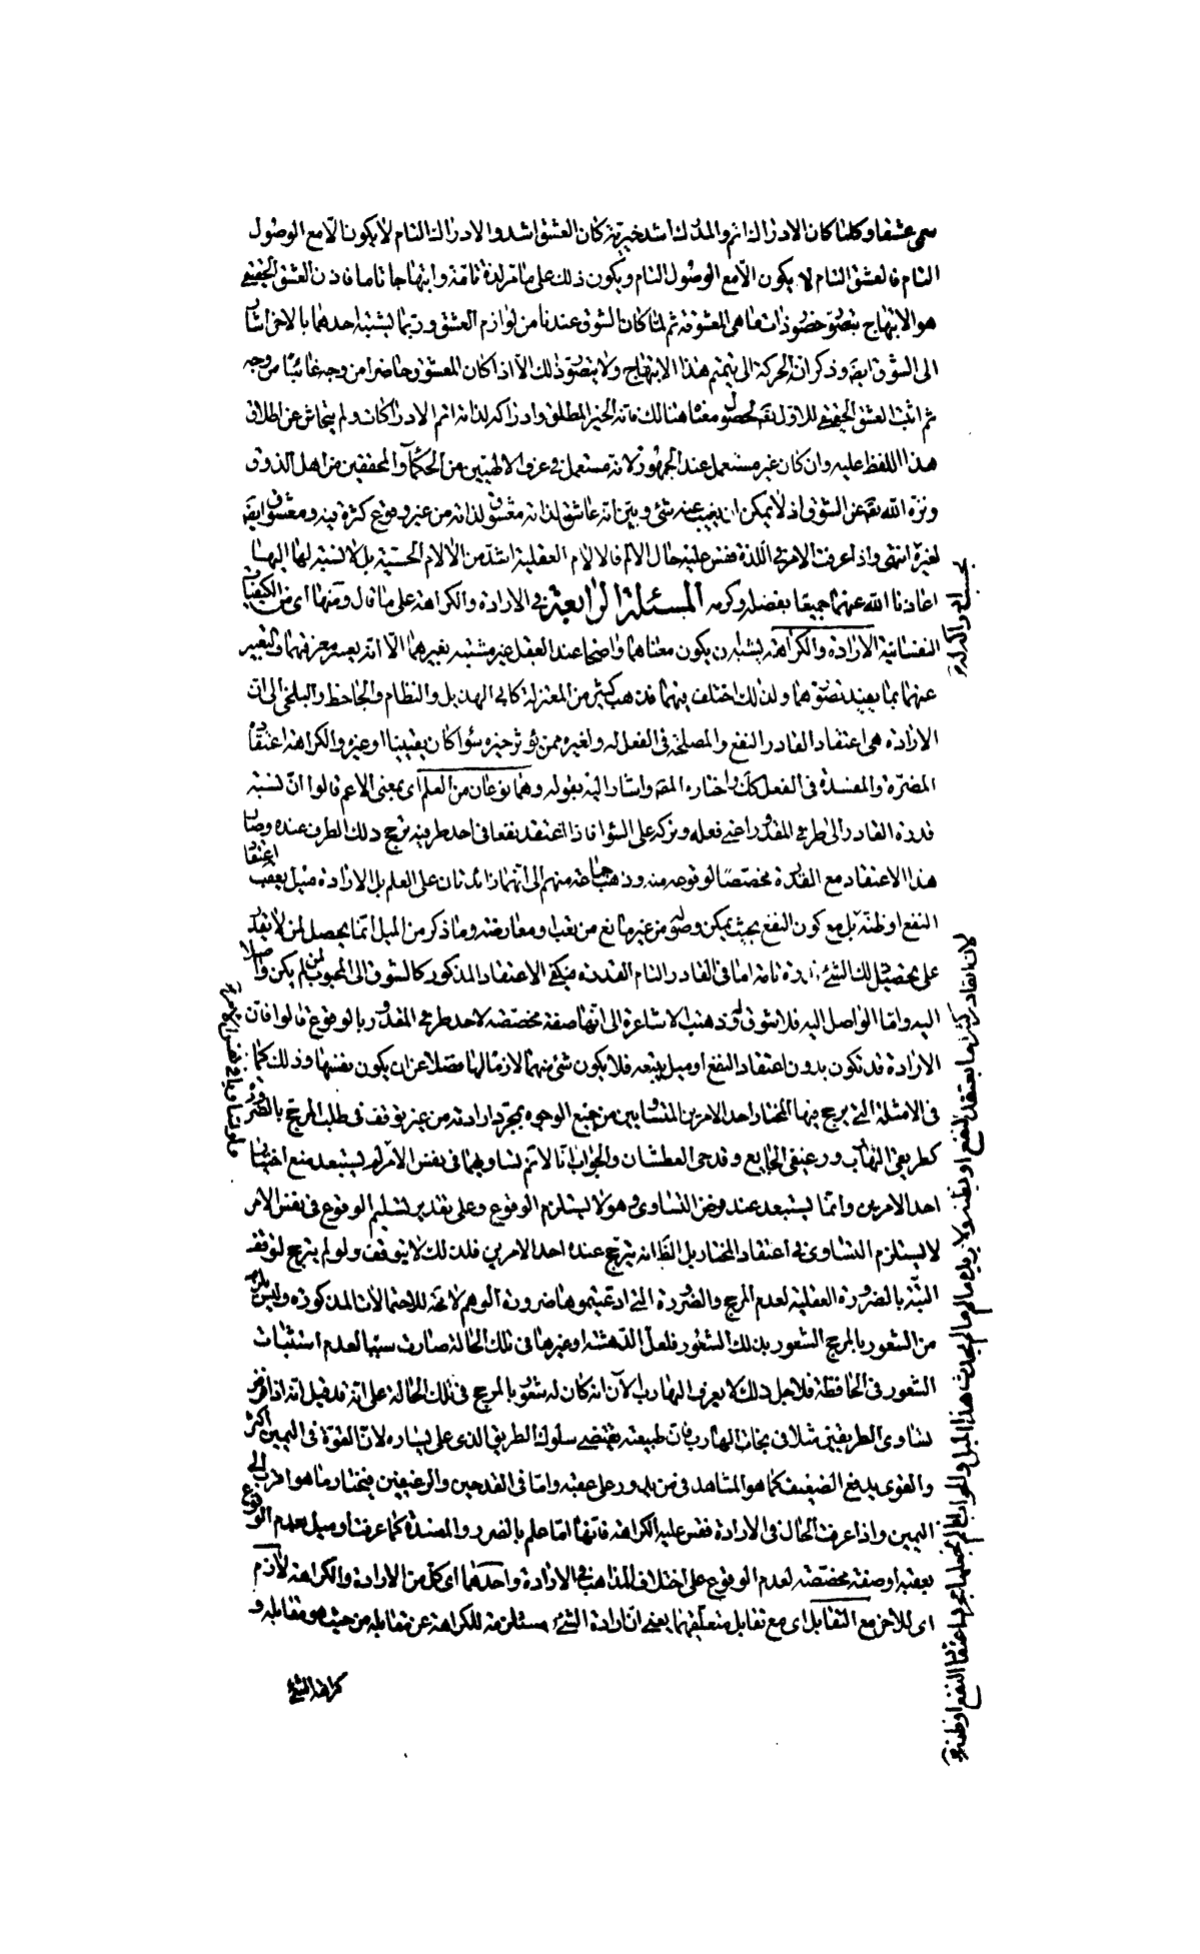 سمى عشقا وكلما كان الادراك اتم والمدرك اشد خيرية كان العشق اشد والادراك التام لا يكون الا مع الوصول
التام فالعشق التام لا يكون الا مع الوصول التام ويكون ذلك على ما مر لذة تامة وابتهاجا تاما فاذن العشق الحقيقى
هو الابتهاج بتصور حضور ذات ما هى المعشوقة ثم لما كان الشوق عندنا من لوازم العشق وربما يشتبه احدهما بالاخر اشار
الى الشوق ايضا وذكر انه الحركة الى تتميم هذا الابتهاج ولا يتصور ذلك الا اذا كان المعشوق حاضرا من وجه غائبا من وجه
ثم اثبت العشق الحقيقى للاول تعالى لحصول معناه هنالك فانه الخير المطلق وادراكه لذاته اتم الادراكات ولم يتحاش عن اطلاق
هذا اللفظ عليه وان كان غير مستعمل عند الجمهور لانه مستعمل فى عرف الالهيين من الحكماء والمحققين من اهل الذوق
ونزه الله تعالى عن الشوق اذ لا يمكن ان يغيب عنه شئ وبين انه عاشق لذاته معشوق لذاته من غير وقوع كثرة فيه ومعشوق ايضا
لغيره انتهى واذا عرفت الامر فى اللذة فقس عليه حال الالم فالالام العقلية اشد من الالام الحسية بل لا نسبة لها اليها
اعاذنا الله عنهما جميعا بفضله وكرمه المسئلة الرابعة فى الارادة والكراهة على ما قال ومنها اى من الكيفيات
النفسانية الارادة والكراهة يشبه ان يكون معناهما واضحا عند العقل غير مشتبه بغيرهما الا انه يعسر معرفتهما والتعبير
عنهما بما يفيد تصورهما ولذلك اختلف فيهما فذهب كثير من المعتزلة كابى الهذيل والنظام والجاحظ والبلخى الى ان
الارادة هى اعتقاد القادر النفع والمصلحة فى الفعل له ولغيره ممن يؤثر خيره سواء كان يقينيا او غيره والكراهة اعتقاد
المضرة والمفسدة فى الفعل كك واختاره المصنف واشار اليه بقوله وهما نوعان من العلم اى بمعنى الاعم قالوا ان نسبة
قدرة القادر الى طرفى المقدور اعنى فعله وتركه على السواء فاذا اعتقد نفعا فى احد طرفيه ترجح ذلك الطرف عنده وصار
هذا الاعتقاد مع القدرة مخصصا لوقوعه منه وذهب جماعة منهم الى انهما زائدتان على العلم بل الارادة ميل يعقب اعتقاد
النفع او ظنه بل مع كون النفع بحيث يمكن وصوله من غير مانع من تعب او معارضة وما ذكر من الميل انما يحصل لمن لا يقدر
على تحصيل ذلك الشئ قدرة تامة اما فى القادر التام القدرة فيكفى الاعتقاد المذكور كالشوق الى المحبوب لمن لم يكن واصلا
اليه واما الواصل اليه فلا شوق له وذهب الاشاعرة الى انها صفة مخصصة لاحد طرفى المقدور بالوقوع قالوا فان
الارادة قد تكون بدون اعتقاد النفع او ميل يتبعه فلا يكون شئ منهما لازما لها فضلا عن ان يكون نفسها وذلك كما
فى الامثلة التى يرجح فيها المختار احد الامرين المتساويين من جميع الوجوه بمجرد ارادته من غير توقف فى طلب المرجح بالضرورة
كطريقى الهارب ورغيفى الجايع وقدحى العطشان والجواب انا لا نم تساويهما فى نفس الامر اذ لم يستبعد منع اختيار
احد الامرين وانما يستبعد عند فرض التساوى وهو لا يستلزم الوقوع وعلى تقدير تسليم الوقوع فى نفس الامر
لا يستلزم التساوى فى اعتقاد المختار بل الظ انه يترجح عنده احد الامرين فلذلك لا يتوقف ولو لم يترجح لتوقف
البتة بالضرورة العقلية لعدم المرجح والضرورة التى ادعيتموها ضرورة الوهم لانه للاحتمالات المذكورة وليس يلزم
من الشعور بالمرجح الشعور بذلك الشعور فلعل الدهشة او غيرها فى تلك الحالة صارت سببا لعدم استثبات
الشعور فى الحافظة فلاجل ذلك لا يعرف الهارب الآن انه كان له شعور بالمرجح فى تلك الحالة على انه قد قيل انه اذا فرض
تساوى الطريقين مثلا فى نجاة الهارب فان طبيعته تقتضى سلوك الطريق الذى على يساره لان القوة فى اليمين اكثر
والقوى يدفع الضعيف كما هو المشاهد فى من يدور على عقبه واما فى القدحين والرغيفين فيختار ما هو اقرب الى
اليمين واذا عرفت الحال فى الارادة فقس عليه الكراهة فانها اما علم بالضرر والمفسدة كما عرفت او ميل بعدم الوقوع
يعقبه او صفة مخصصة لعدم الوقوع على اختلاف المذاهب فى الارادة واحدهما اى كل من الارادة والكراهة لازم
اى للاخر مع التقابل اى مع تقابل متعلقيهما يعنى ان ارادة الشئ مستلزمة للكراهة عن مقابله من حيث هو مقابله و
كراهة الشئ
لان القادر كثيرا ما يعتقد النفع او يظنه ولا يريده ما لم يحدث هذا الميل والجواب انا لم نجعلها مجرد اعتقاد النفع او ظنه